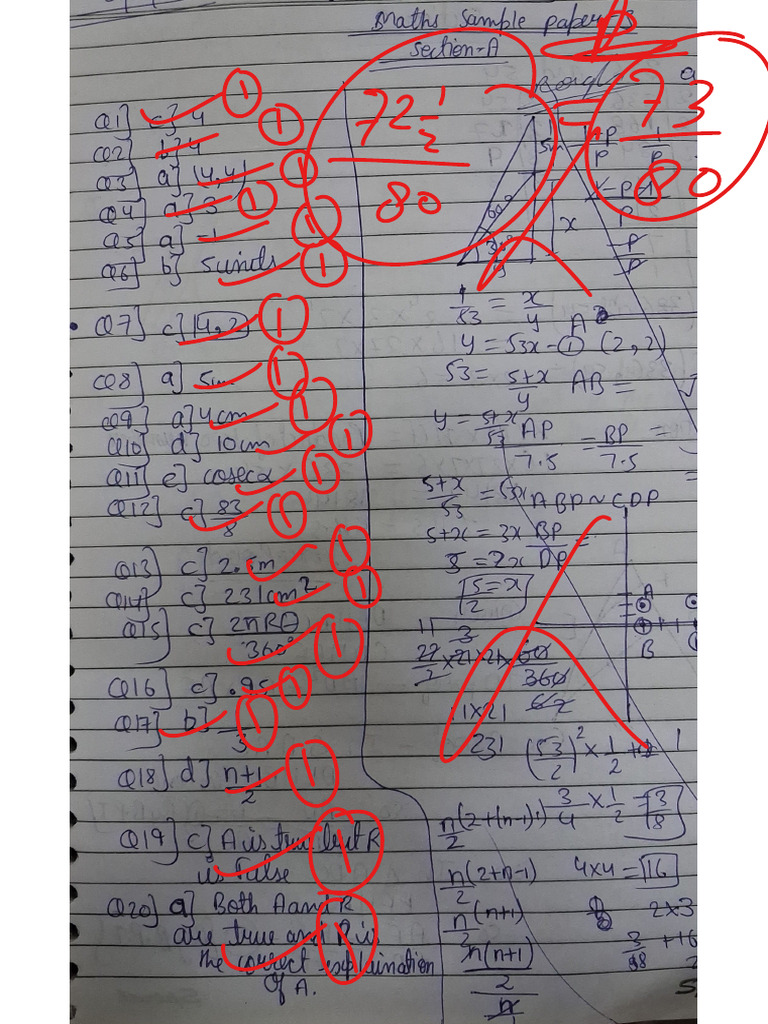 Maths Sample paper-3
Section-A
Rough
72 1/2 / 80
73 / 80
Q1] c] 4 1
Q2] b] 4 1
Q3] a] (4,4) 1
Q4] a] 3 1
Q5] a] -1 1
Q6] b] 5 units 1
Q7] c] (4,2) 1
Q8] a] 5m 1
Q9] a] 4cm 1
Q10] d] 10cm 1
Q11] c] cosecα 1
Q12] c] 83/8 1
Q13] c] 2.5m 1
Q14] c] 231cm² 1
Q15] c] 2πRθ/360° 1
Q16] c] 1
Q17] b] 1
Q18] d] n+1/2 1
Q19] c] A is true but R 1
is False
Q20] a] Both A and R
are true and R is 1
the correct explaination
of A.
5m
60°
x
y
1/√3 = x/y
y = √3x - ① (2,2)
√3 = 5+x/y AB =
y = 5+x/√3
AP/7.5 = BP/7.5 =
5+x/√3 = √3x ABP ~ CDP
5+x = 3x BP/DP =
5 = 2x
5/2 = x
A
B
22/7 × 21 × 21 × 60/360
11 × 21
231 (√3/2)² × 1/2 +
3/4 × 1/2 = 3/8
n/2 (2+(n-1)1)
n/2 (2+n-1) 4×4 = 16
n/2 (n+1) 2×3
n(n+1)/2